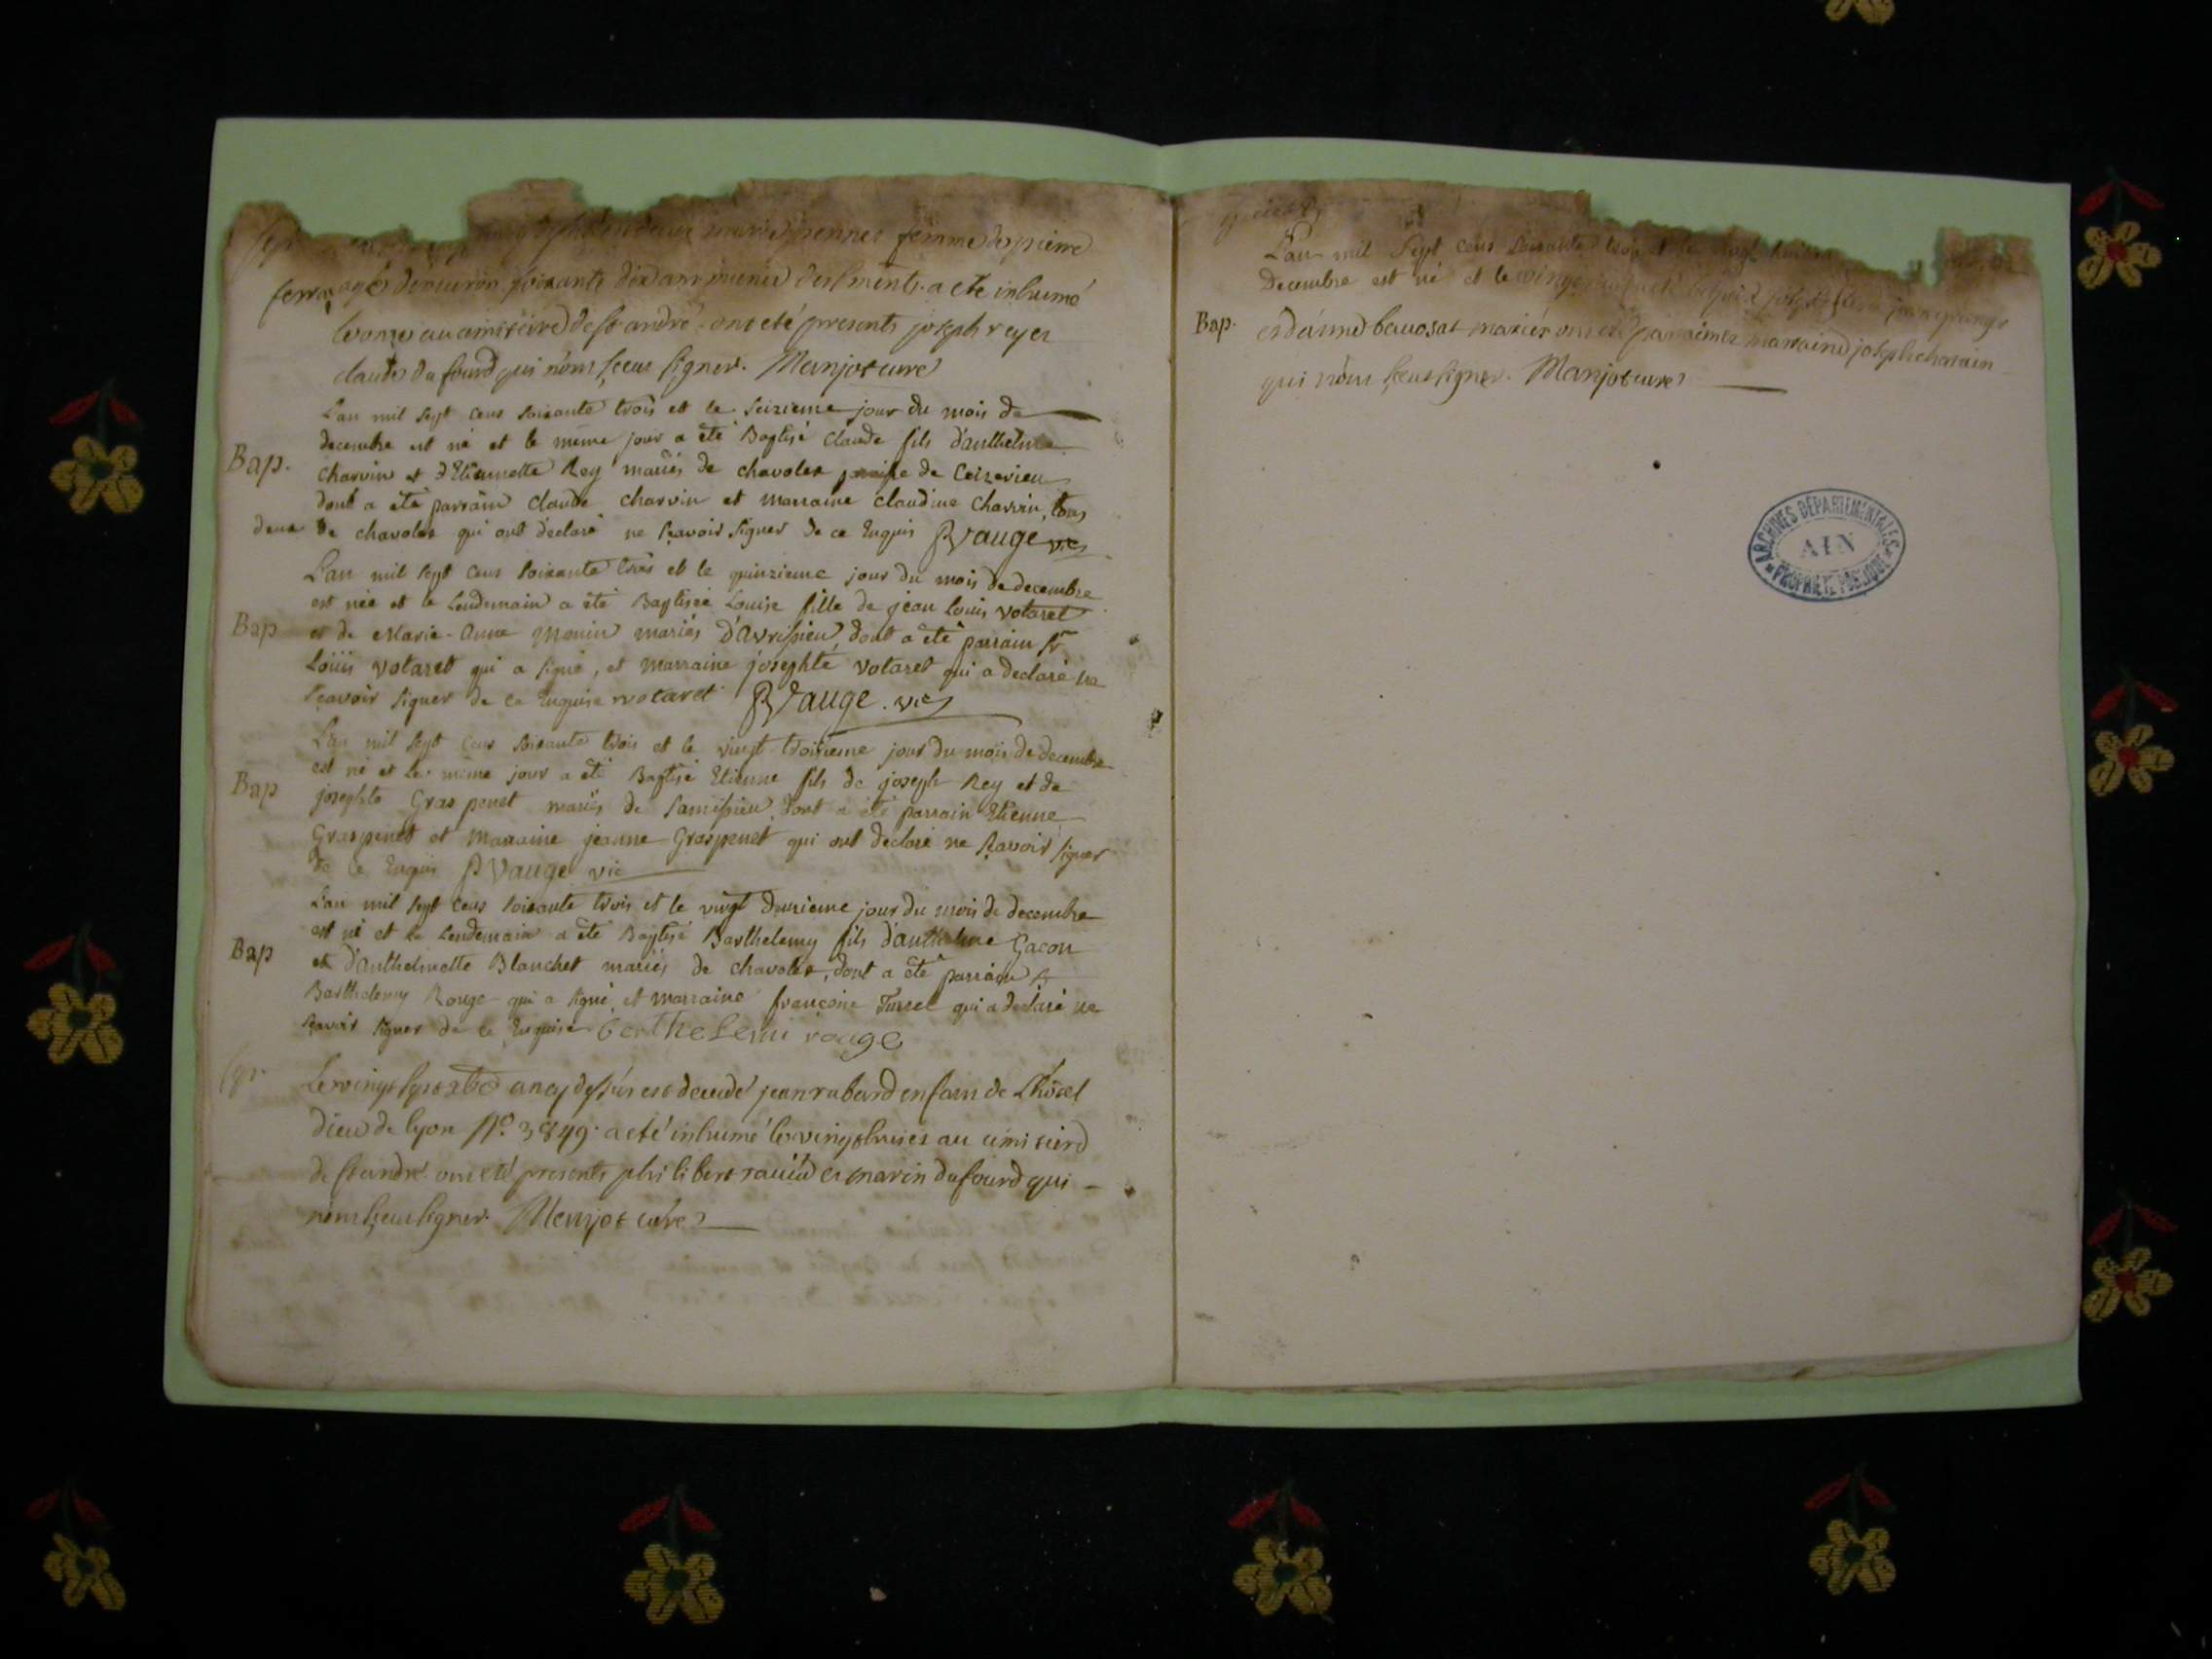 femme de pierre
ferra agé d'environ soixante dix ans munie des sments. a eté inhumé
le onze au cimitière de st andré. ont eté presents joseph reyer
claude du fourd qui n'ont sceus signer. Manjot curé
L'an mil sept cens soixante trois et le seizieme jour du mois de
decembre est né et le même jour a été Baptisé Claude fils d'anthelme
Bap.
Charvin et d'Etiennette Rey mariés de chavoley de Ceizerieu
dont a été parrain Claude charvin et marraine Claudine Charvin, tous
deux de chavoley qui ont declaré ne sçavoir signer de ce Enquis P Vauge vic
L'an mil sept cens soixante trois et le quinzieme jour du mois de decembre
est née et le lendemain a été Baptisée Louise fille de jean louis votaret
Bap
et de Marie-Anne monin mariés d'avrissieu dont a été parrain sr
Loüis votaret qui a signé, et marraine josephte votaret qui a declaré ne
sçavoir signer de ce Enquise votaret P Vauge. vic
L'an mil sept cens soixante trois et le vingt troisieme jour du mois de decembre
est né et le même jour a été Baptisé Etienne fils de joseph Rey et de
Bap
josephte Graspenet mariés de dont a été parrain Etienne
Graspenet et Marraine jeanne Graspenet qui ont declaré ne sçavoir signer
de ce Enquis P Vauge vic
L'an mil sept cens soixante trois et le vingt deuxieme jour du mois de decembre
est né et le lendemain a été Baptisé Barthelemy fils d'anthelme Gacon
Bap
et d'Anthelmette Blanchet mariés de chavoley, dont a été parrain sr
Barthelemy Rouge qui a signé, et marraine françoise qui a declaré ne
sçavoir signer de ce Enquise berthelemi rouge
Sep.
Le vingt sept xbre an cy dessus est decedé jean rabard enfant de Lhôtel
dieu de lyon No. 3849. a eté inhumé le vingt huit au cimitierd
de st andré ont eté presents philibert et marin dufourd qui
n'ont sceus signer. Manjot curé
L'an mil sept cens soixante trois et le vingt
Decembre est né et le
Bap.
et d'anne beauosat mariés ont été parrain et marraine joseph
qui n'ont sceus signer. Manjot curé
ARCHIVES DÉPARTEMENTALES
AIN
PROPRIÉTÉ PUBLIQUE